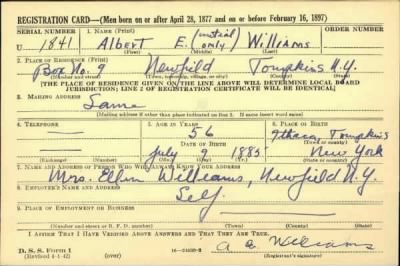 REGISTRATION CARD—(Men born on or after April 28, 1877 and on or before February 16, 1897)
SERIAL NUMBER 1. NAME (Print)
U 1841 Albert E. (initial only) Williams
(First) (Middle) (Last)
2. PLACE OF RESIDENCE (Print)
Box No. 9 Newfield Tompkins N.Y.
(Number and street) (Town, township, village, or city) (County) (State)
[THE PLACE OF RESIDENCE GIVEN ON THE LINE ABOVE WILL DETERMINE LOCAL BOARD
JURISDICTION; LINE 2 OF REGISTRATION CERTIFICATE WILL BE IDENTICAL]
3. MAILING ADDRESS
Same
[Mailing address if other than place indicated on line 2. If same insert word same]
4. TELEPHONE 5. AGE IN YEARS 6. PLACE OF BIRTH
56 Ithaca, Tompkins
DATE OF BIRTH (Town or county)
July 9 1885 New York
(Exchange) (Number) (Mo.) (Day) (Yr.) (State or country)
7. NAME AND ADDRESS OF PERSON WHO WILL ALWAYS KNOW YOUR ADDRESS
Mrs. Ellen Williams, Newfield N.Y.
8. EMPLOYER'S NAME AND ADDRESS
Self
9. PLACE OF EMPLOYMENT OR BUSINESS
(Number and street or R. F. D. number) (Town) (County) (State)
I AFFIRM THAT I HAVE VERIFIED ABOVE ANSWERS AND THAT THEY ARE TRUE.
D. S. S. Form 1
(Revised 4-1-42) (over) A E Williams
(Registrant's signature)